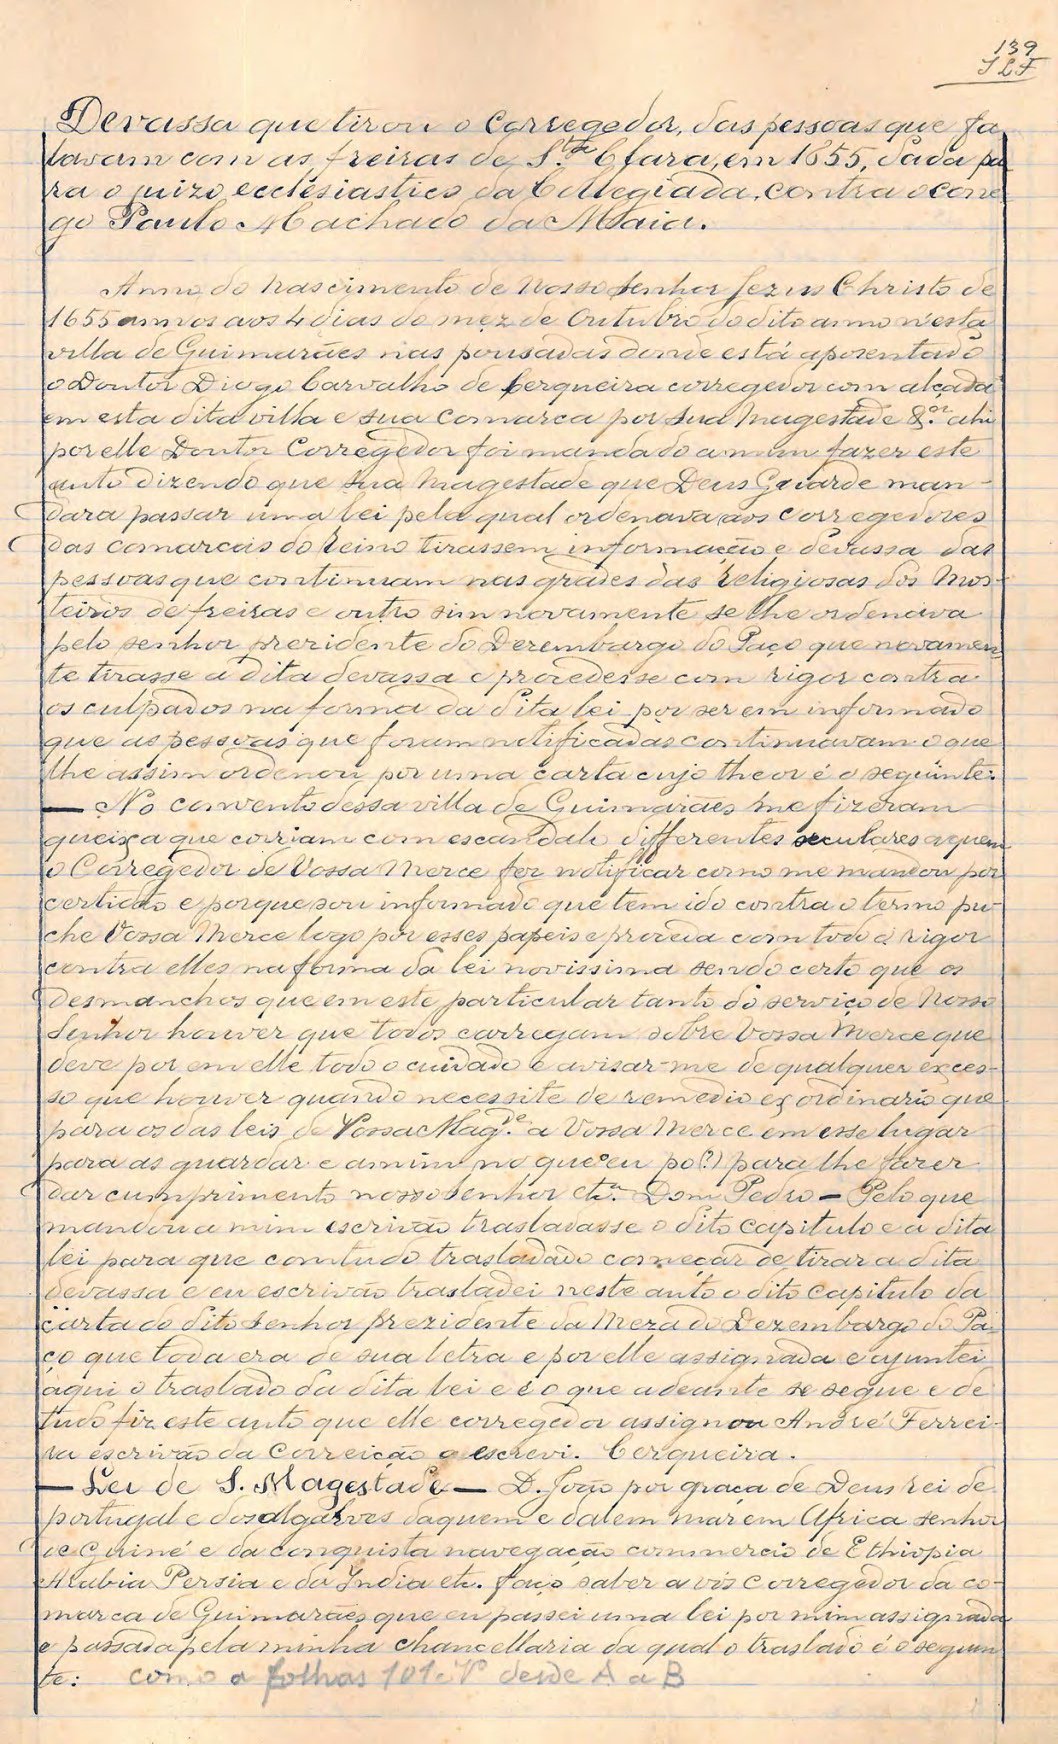 139
SLF
Devassa que tirou o Corregedor, das pessoas que fa
lavam com as freiras de S.ta Clara, em 1655, dada pa
ra o juizo ecclesiastico da Collegiada, contra o cone
go Paulo Machado da Maia.
Anno do Nascimento de Nosso Senhor Jezus Christo de
1655 annos aos 4 dias do mez de Outubro do dito anno n'esta
villa de Guimarães nas pousadas donde está aposentado
o Doutor Diogo Carvalho de Cerqueira corregedor com alçada
em esta dita villa e sua comarca por Sua Magestade &.ª ahi
por elle Doutor Corregedor foi mandado a mim fazer este
auto dizendo que Sua Magestade que Deus Guarde man-
dara passar uma lei pela qual ordenava aos corregedores
das comarcas do reino tirassem informação e devassa das
pessoas que continuam nas grades das religiosas dos Mos-
teiros de freiras e outro sim novamente se lhe ordenava
pelo senhor prezidente do Dezembargo do Paço que novamen
te tirasse a dita devassa e procedesse com rigor contra
os culpados na forma da dita lei por ser em informado
que as pessoas que foram notificadas continuavam o que
lhe assim ordenou por uma carta cujo theor é o seguinte:
— No convento dessa villa de Guimarães me fizeram
queixa que corriam com escandalo differentes seculares a quem
o Corregedor de Vossa Merce fez notificar como me mandou por
certidão e porque sou informado que tem ido contra o termo pu
che Vossa Merce logo por esses papeis e proceda com todo o rigor
contra elles na forma da lei novissima sendo certo que os
desmanchos que em este particular tanto do serviço de Nosso
Senhor houver que todos carregam sobre Vossa Merce que
deve por em elle todo o cuidado e avisar-me de qualquer exces-
so que houver quando necessite de remedio exordinario que
para os das leis de Vossa Mag.de a Vossa Merce em esse lugar
para as guardar e a mim no que eu po(?) para lhe fazer
dar cumprimento nosso senhor etc.ª Dom Pedro — Pelo que
mandou a mim escrivão trasladasse o dito capitulo e a dita
lei para que comtudo trasladado começar de tirar a dita
devassa e eu escrivão trasladei neste auto o dito capitulo da
carta do dito Senhor prezidente da Meza do Dezembargo do Pa-
ço que toda era de sua letra e por elle assignada e ajuntei
aqui o traslado da dita lei e é o que adeante se segue e de
tudo fiz este auto que elle corregedor assignou André Ferrei-
ra escrivão da Correição o escrevi. Cerqueira.
— Lei de S. Magestade — D. João por graça de Deus rei de
portugal e dos algarves daquem e dalem mar em Africa senhor
de Guiné e da conquista navegação commercio de Ethiopia
Arabia Persia e da India etc. faço saber a vós Corregedor da co-
marca de Guimarães que eu passei uma lei por mim assignada
e passada pela minha chancellaria da qual o traslado é o seguin
te: como a folhas 101 V desde A a B